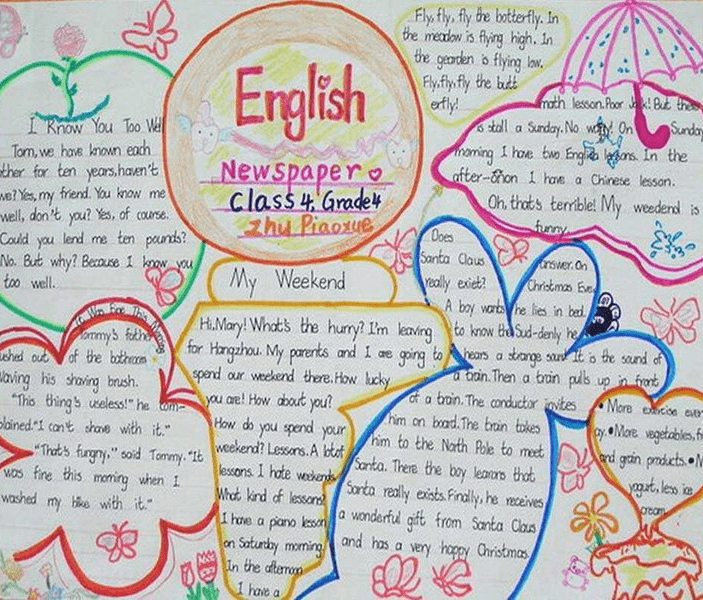 English
Newspaper
Class 4. Grade 4
Zhu Piaoxue
I Know You Too Well
Tom, we have known each
other for ten years, haven't
we? Yes, my friend. You know me
well, don't you? Yes, of course.
Could you lend me ten pounds?
No. But why? Because I know you
too well.
It Was Fine This Morning
Tommy's father
ushed out of the bathroom
waving his shaving brush.
"This thing's useless!" he com-
plained. "I can't shave with it."
"That's fungny," said Tommy. "It
was fine this morning when I
washed my bike with it."
My Weekend
Hi, Mary! What's the hurry? I'm leaving
for Hangzhou. My parents and I are going to
spend our weekend there. How lucky
you are! How about you?
How do you spend your
weekend? Lessons. A lot of
lessons. I hate weekends
What kind of lessons?
I have a piano lesson
on Saturday morning.
In the afternoon
I have a
math lesson. Poor Jack! But there
is stall a Sunday. No worry! On Sunday
morning I have two English lessons. In the
after-onon I have a Chinese lesson.
Oh, that's terrible! My weedend is
funny.
Fly, fly, fly the botterfly. In
the meadow is flying high. In
the gearden is flying low.
Fly, fly, fly the butt
erfly!
Does
Santa Claus
really exist?
A boy wants
to know the
answer. On
Christmas Eve,
he lies in bed.
Sud-denly he
hears a strange sound. It is the sound of
a train. Then a train pulls up in front
of a train. The conductor invites
him on board. The train takes
him to the North Pole to meet
Santa. There the boy learons that
Santa really exists. Finally, he receives
a wonderful gift from Santa Claus
and has a very happy Christmas.
• More exercise ever
ay. • More vegetables, fr
and grain products. • M
yogurt, less ice
cream.